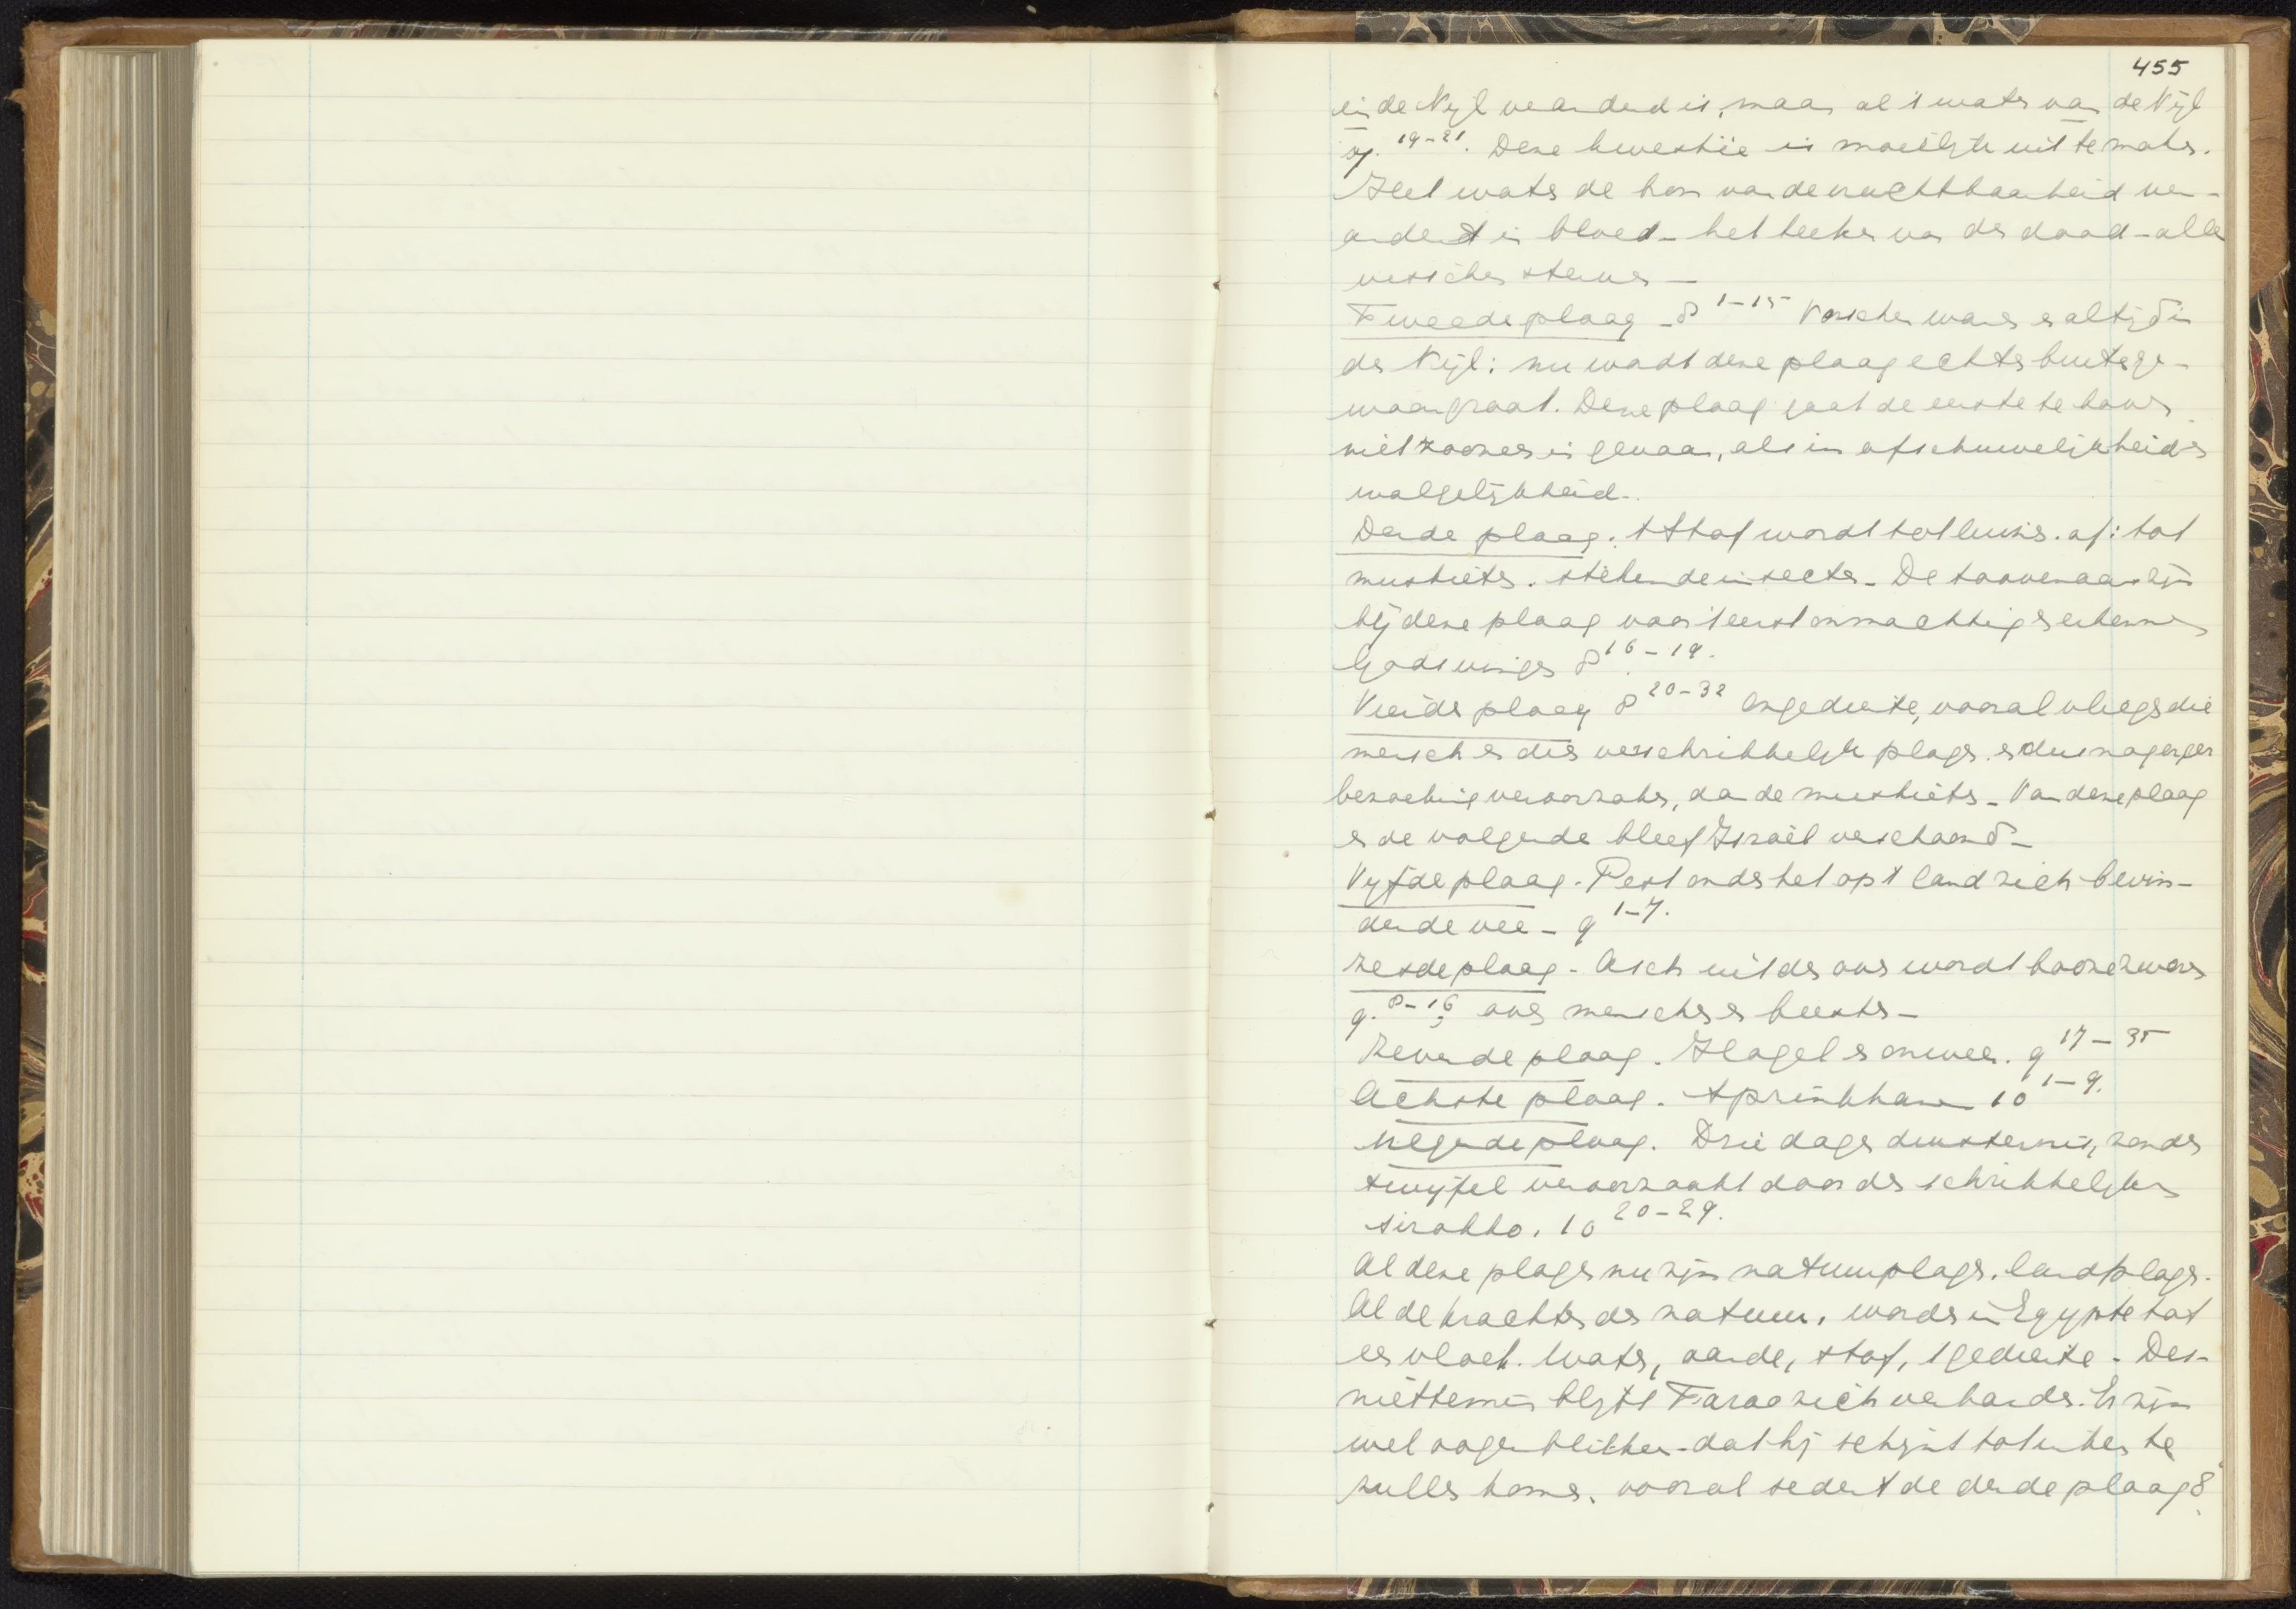 455
in de Nijl veranderd is, maar al 't water van de Nijl
vg. 19-21. Deze kwestie is moeilijk uit te maken.
Heel water de bron van de vruchtbaarheid ver-
andert in bloed - het teeken van den dood - alle
visschen sterven -
Tweede plaag - 8 1-15 Vorschen waren er altijd in
den Nijl: nu wordt deze plaag echter buitenge-
woon groot. Deze plaag gaat de eerste te boven
niet zoozeer in gevaar, als in afschuwelijkheid en
walgelijkheid.
Derde plaag. 't Stof wordt tot luizen. of: tot
muskieten. stekende insecten - De toovenaars zijn
bij deze plaag voor 't eerst onmachtig en erkennen
Gods vinger 8 16-19.
Vierde plaag 8 20-32 Ongedierte, vooral vliegen die
mensch en dier verschrikkelijk plagen. en dus nog erger
bezoeking veroorzaken, dan de muskieten - Van deze plaag
en de volgende bleef Israël verschoond -
Vijfde plaag. Pest onder het op 't land zich bevin-
dende vee - 9 1-7.
Zesde plaag - Asch uit den oven wordt booze zweren
9. 8-16 over menschen en beesten -
Zevende plaag. Hagel en onweer. 9 17-35
Achtste plaag. Sprinkhanen 10 1-9.
Negende plaag. Drie dagen duisternis, zonder
twijfel veroorzaakt door den schrikkelijken
sirokko. 10 20-29.
Al deze plagen nu zijn natuurplagen. landplagen.
Al de krachten der natuur, worden in Egypte tot
een vloek. Water, aarde, stof, 't gedierte - Des-
niettemin blijft Farao zich verharden. Er zijn
wel oogenblikken - dat hij schijnt tot inkeer te
zullen komen, vooral sedert de derde plaag 8